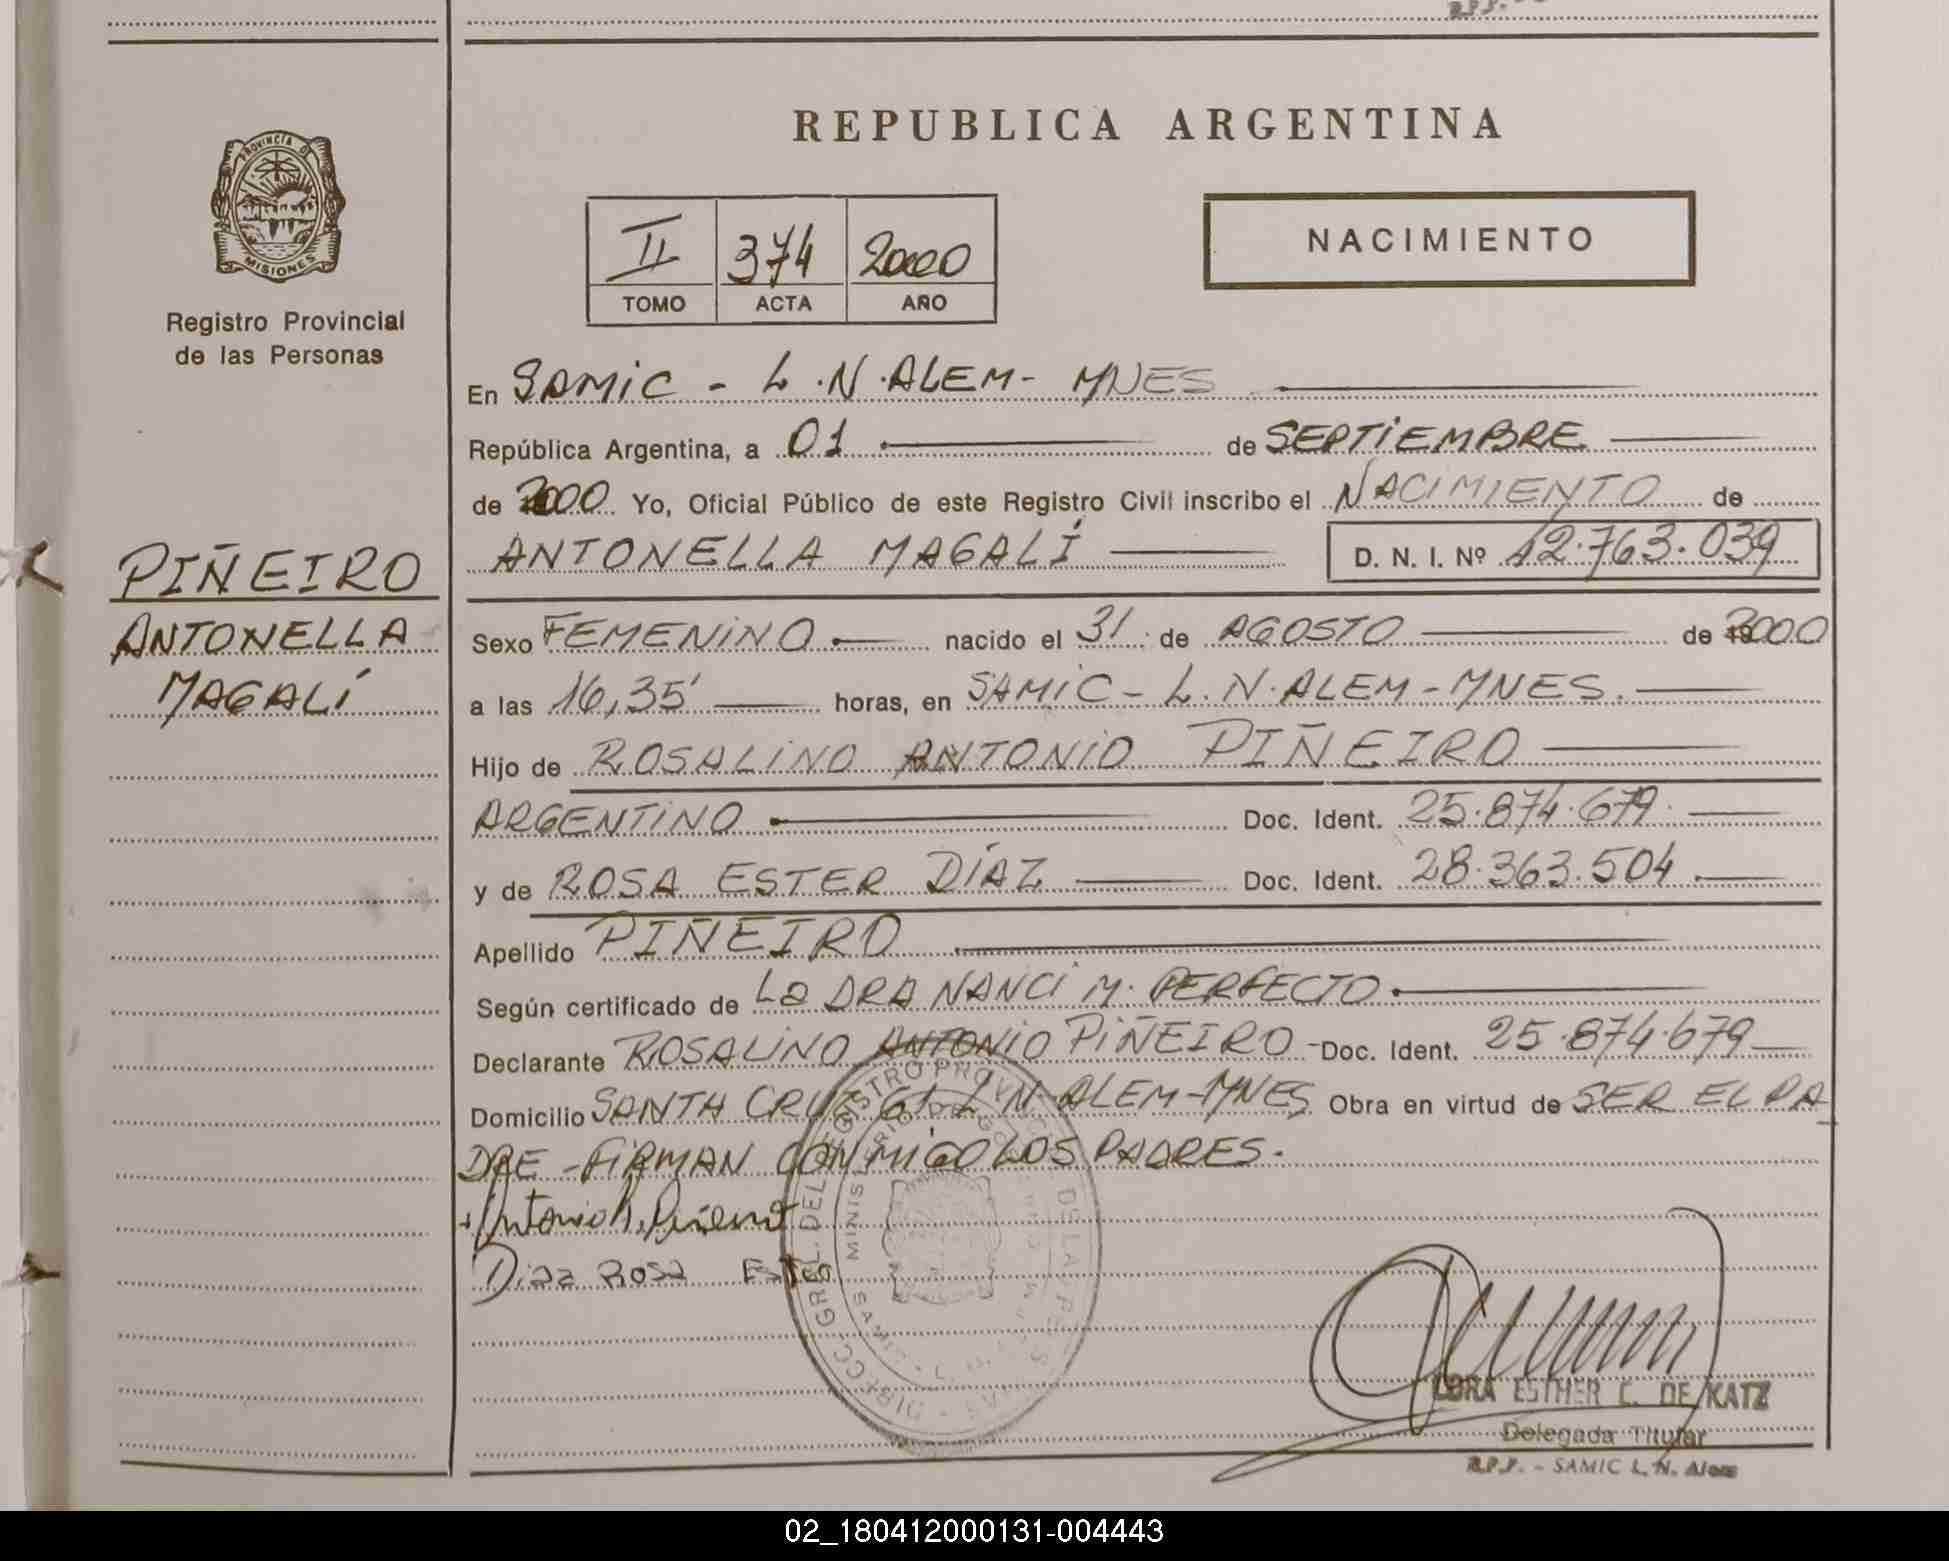 PROVINCIA DE
MISIONES
Registro Provincial
de las Personas
PIÑEIRO
ANTONELLA
MAGALÍ
REPUBLICA ARGENTINA
II 374 2000
TOMO ACTA AÑO
NACIMIENTO
En SAMIC - L.N.ALEM- MNES
República Argentina, a 01 de SEPTIEMBRE
de 2000 Yo, Oficial Público de este Registro Civil inscribo el NACIMIENTO de
ANTONELLA MAGALÍ D. N. I. Nº 42.763.039
Sexo FEMENINO nacido el 31 de AGOSTO de 2000
a las 16,35' horas, en SAMIC - L.N.ALEM-MNES.
Hijo de ROSALINO ANTONIO PIÑEIRO
ARGENTINO Doc. Ident. 25.874.679
y de ROSA ESTER DÍAZ Doc. Ident. 28.363.504
Apellido PIÑEIRO
Según certificado de La DRA NANCI M. PERFECTO
Declarante ROSALINO ANTONIO PIÑEIRO - Doc. Ident. 25.874.679
Domicilio SANTA CRUZ 61 L N ALEM-MNES Obra en virtud de SER EL PA
DRE - FIRMAN CONMIGO LOS PADRES.
Antonio R. Piñeiro
Diaz Rosa Ester
DORA ESTHER C. DE KATZ
Delegada Titular
R.P.P. - SAMIC L. N. Alem
02_180412000131-004443